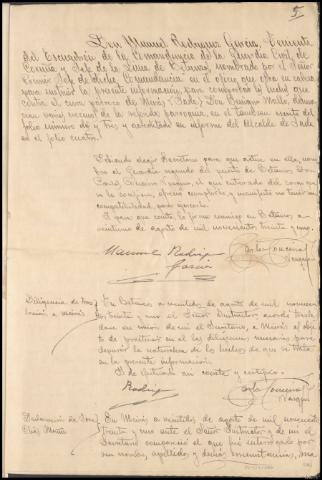 5
Don Manuel Rodriguez Garcia, Teniente
del Escuadrón de la Comandancia de la Guardia Civil de
Coruña y Jefe de la Linea de Betanzos, nombrado por el Señor
Primer Jefe de dicha Comandancia en el oficio que obra en cabeza
para instruir la presente información, para comprobar los hechos que
contra el cura parroco de Meirás (Sada) Don Benigno
vecinos de la referida parroquia, en el
folio número dos y tres y acreditado en informe del Alcalde de Sada
en el folio cuatro.
Secretario para que actue en ella,
el Guardia segundo del puesto de Betanzos Don
Carlos Vazquez, que enterado del cargo que
se le confiere, ofreció cumplirlo y manifestó no tener in-
compatibilidad para ejercerlo.
Y para que conste lo firma conmigo en Betanzos a
veintiuno de agosto de mil novecientos treinta y uno.
Manuel Rodrigz
Garcia
Carlos
Vazquez
Diligencia de tras-
lación a Meirás
En Betanzos a veintidos de agosto de mil novecien-
tos treinta y uno el Señor Instructor acordó trasla-
darse en unión de mi el Secretario, a Meirás al objeto
de practicar en él las diligencias necesarias para
depurar la naturaleza de los hechos de que se trata
en la presente información.
Y de efectuarlo así conste y certifico.
Rodrigz
Carlos
Vazquez
Declaración de Don
Elias
En Meirás a veintidos de agosto de mil novecientos
treinta y uno ante el Señor Instructor y de mi el
Secretario compareció el que fué interrogado por
su nombre, apellidos y demás circunstancias,